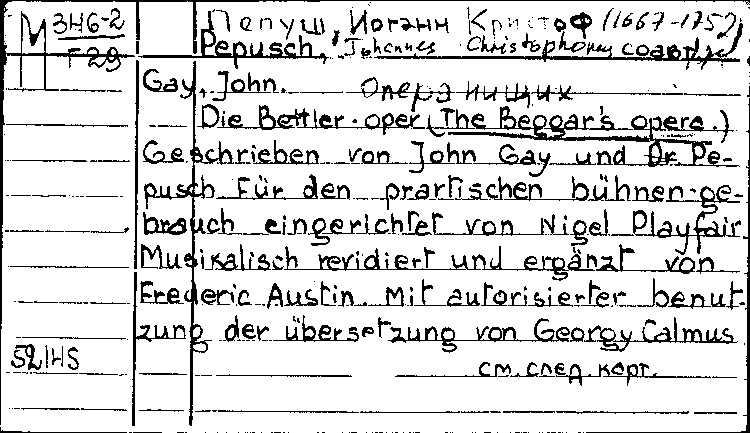 М 3Н6-2
Г29
Пепуш, Иоганн Кристоф (1667-1752)
Pepusch, Johannes Christophorus
Gay, John. Опера нищих
Die Bettler-oper (The Beggar's opera.)
Geschrieben von John Gay und Dr. Pe-
pusch Für den prartischen bühnen-ge-
brauch eingerichtet von Nigel Playfair.
Musikalisch revidiert und ergänzt von
Frederic Austin. Mit autorisierter benut-
zung der übersetzung von Georgy Calmus
см. след. карт.